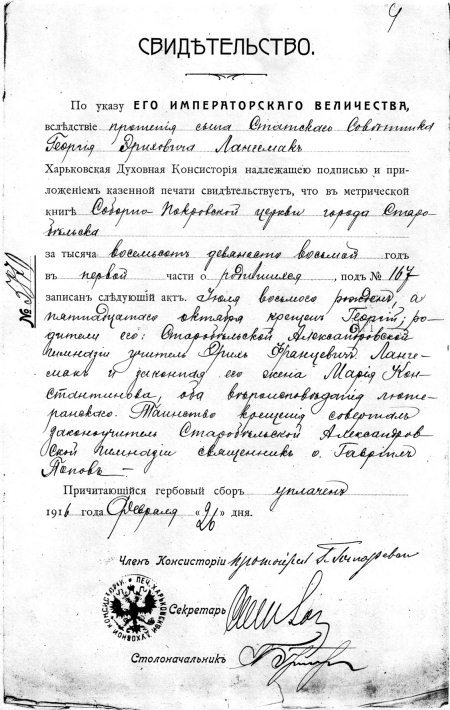 СВИДѢТЕЛЬСТВО.
По указу ЕГО ИМПЕРАТОРСКАГО ВЕЛИЧЕСТВА,
вслѣдствіе прошенія сына Статскаго Совѣтника
Георгія Эриховича Лангемакъ
Харьковская Духовная Консисторія надлежащею подписью и при-
ложеніемъ казенной печати свидѣтельствуетъ, что въ метрической
книгѣ Соборно-Покровской церкви города Старо-
бѣльска
за тысяча восемьсот девяносто восьмой годъ
въ первой части о родившихся, подъ № 167
записан слѣдующій актъ. Іюля восьмого рожденъ, а
пятнадцатаго октября крещенъ Георгій; ро-
дители его: Старобѣльской Александровской
гимназіи учитель Эрихъ Францевичъ Ланге-
макъ и законная его жена Марія Кон-
стантинова, оба вѣроисповѣданія люте-
ранскаго. Таинство крещенія совершалъ
законоучитель Старобѣльской Александров-
ской гимназіи священникъ о. Гавріилъ
Поповъ —
Причитающійся гербовый сборъ уплаченъ
1916 года Февраля дня.
Членъ Консисторіи протоіерей
Секретарь
Столоначальникъ
ПЕЧ. ХАРЬКОВСКОЙ ДУХОВНОЙ КОНСИСТОРІИ